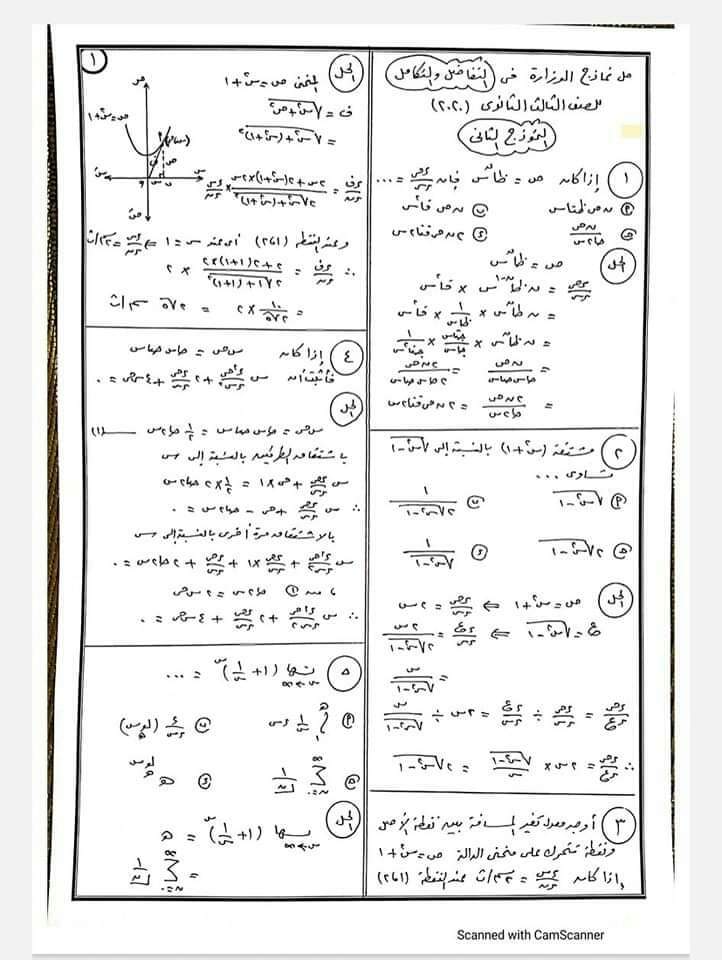 حل نماذج الوزارة فى التفاضل والتكامل
للصف الثالث الثانوى (٢٠٢٠)
النموذج الثانى
١ إذا كان ص = ظا^ن س فإن ءص/ءس = ...
أ ن ص ظتاس ب ن ص قا^٢ س
ج ن ص/حا٢س د ٢ ن ص قتا٢س
الحل
ص = ظا^ن س
ءص/ءس = ن ظا^(ن-١) س × قا^٢ س
= ن ظا^ن س × ١/ظاس × قا^٢ س
= ن ظا^ن س × حتاس/حاس × ١/حتا^٢ س
= ن ص/حاس حتاس = ٢ ن ص/٢حاس حتاس
= ٢ ن ص/حا٢س = ٢ ن ص قتا٢س
٢ مشتقة (س^٢+١) بالنسبة إلى √(س^٢-١)
تساوى ...
أ √(س^٢-١) ب ١/٢√(س^٢-١)
ج ٢√(س^٢-١) د ١/√(س^٢-١)
الحل
ص = س^٢+١ ⇐ ءص/ءس = ٢س
ع = √(س^٢-١) ⇐ ءع/ءس = ٢س/٢√(س^٢-١)
= س/√(س^٢-١)
ءص/ءع = ءص/ءس ÷ ءع/ءس = ٢س ÷ س/√(س^٢-١)
∴ ءص/ءع = ٢س × √(س^٢-١)/س = ٢√(س^٢-١)
٣ أوجد معدل تغير المسافة بين نقطة الأصل
ونقطة تتحرك على منحنى الدالة ص = س^٢+١
إذا كان ءس/ءن = ٢سم/ث عند النقطة (١،٢)
١
الحل
المنحنى ص = س^٢+١
ف = √(س^٢+ص^٢)
= √(س^٢+(س^٢+١)^٢)
ءف/ءن = ٢س+٢(س^٢+١)×٢س/٢√(س^٢+(س^٢+١)^٢) × ءس/ءن
ص
ص = س^٢+١
(س،ص)
ف
ص
س
س
و
ص
وعند النقطة (١،٢) أى عند س = ١ ⇐ ءس/ءن = ٢سم/ث
∴ ءف/ءن = ٢+٢(١+١)×٢/٢√(١+(١+١)^٢) × ٢
= ١٠/٢√٥ × ٢ = ٢√٥ سم/ث
٤ إذا كان س ص = حاس حتاس
فأثبت أن س ء^٢ص/ءس^٢ + ٢ ءص/ءس + ٤س ص = ٠
الحل
س ص = حاس حتاس = ١/٢ حا٢س ــــ (١)
باشتقاق الطرفين بالنسبة إلى س
س ءص/ءس + ص × ١ = ١/٢ × ٢ حتا٢س
∴ س ءص/ءس + ص - حتا٢س = ٠
بالاشتقاق مرة أخرى بالنسبة إلى س
س ء^٢ص/ءس^٢ + ءص/ءس × ١ + ءص/ءس + ٢ حا٢س = ٠
، من ١ حا٢س = ٢ س ص
∴ س ء^٢ص/ءس^٢ + ٢ ءص/ءس + ٤ س ص = ٠
٥ نهــا س←∞ (١+١/س)^س = ...
أ ∫ ١/س ءس ب ء/ءس (لو_ه س)
ج ∑ ١/ن د ه^(لو_ه س)
الحل
نهــا س←∞ (١+١/س)^س = ه
= ∑ ن=٠ ∞ ١/ن
Scanned with CamScanner